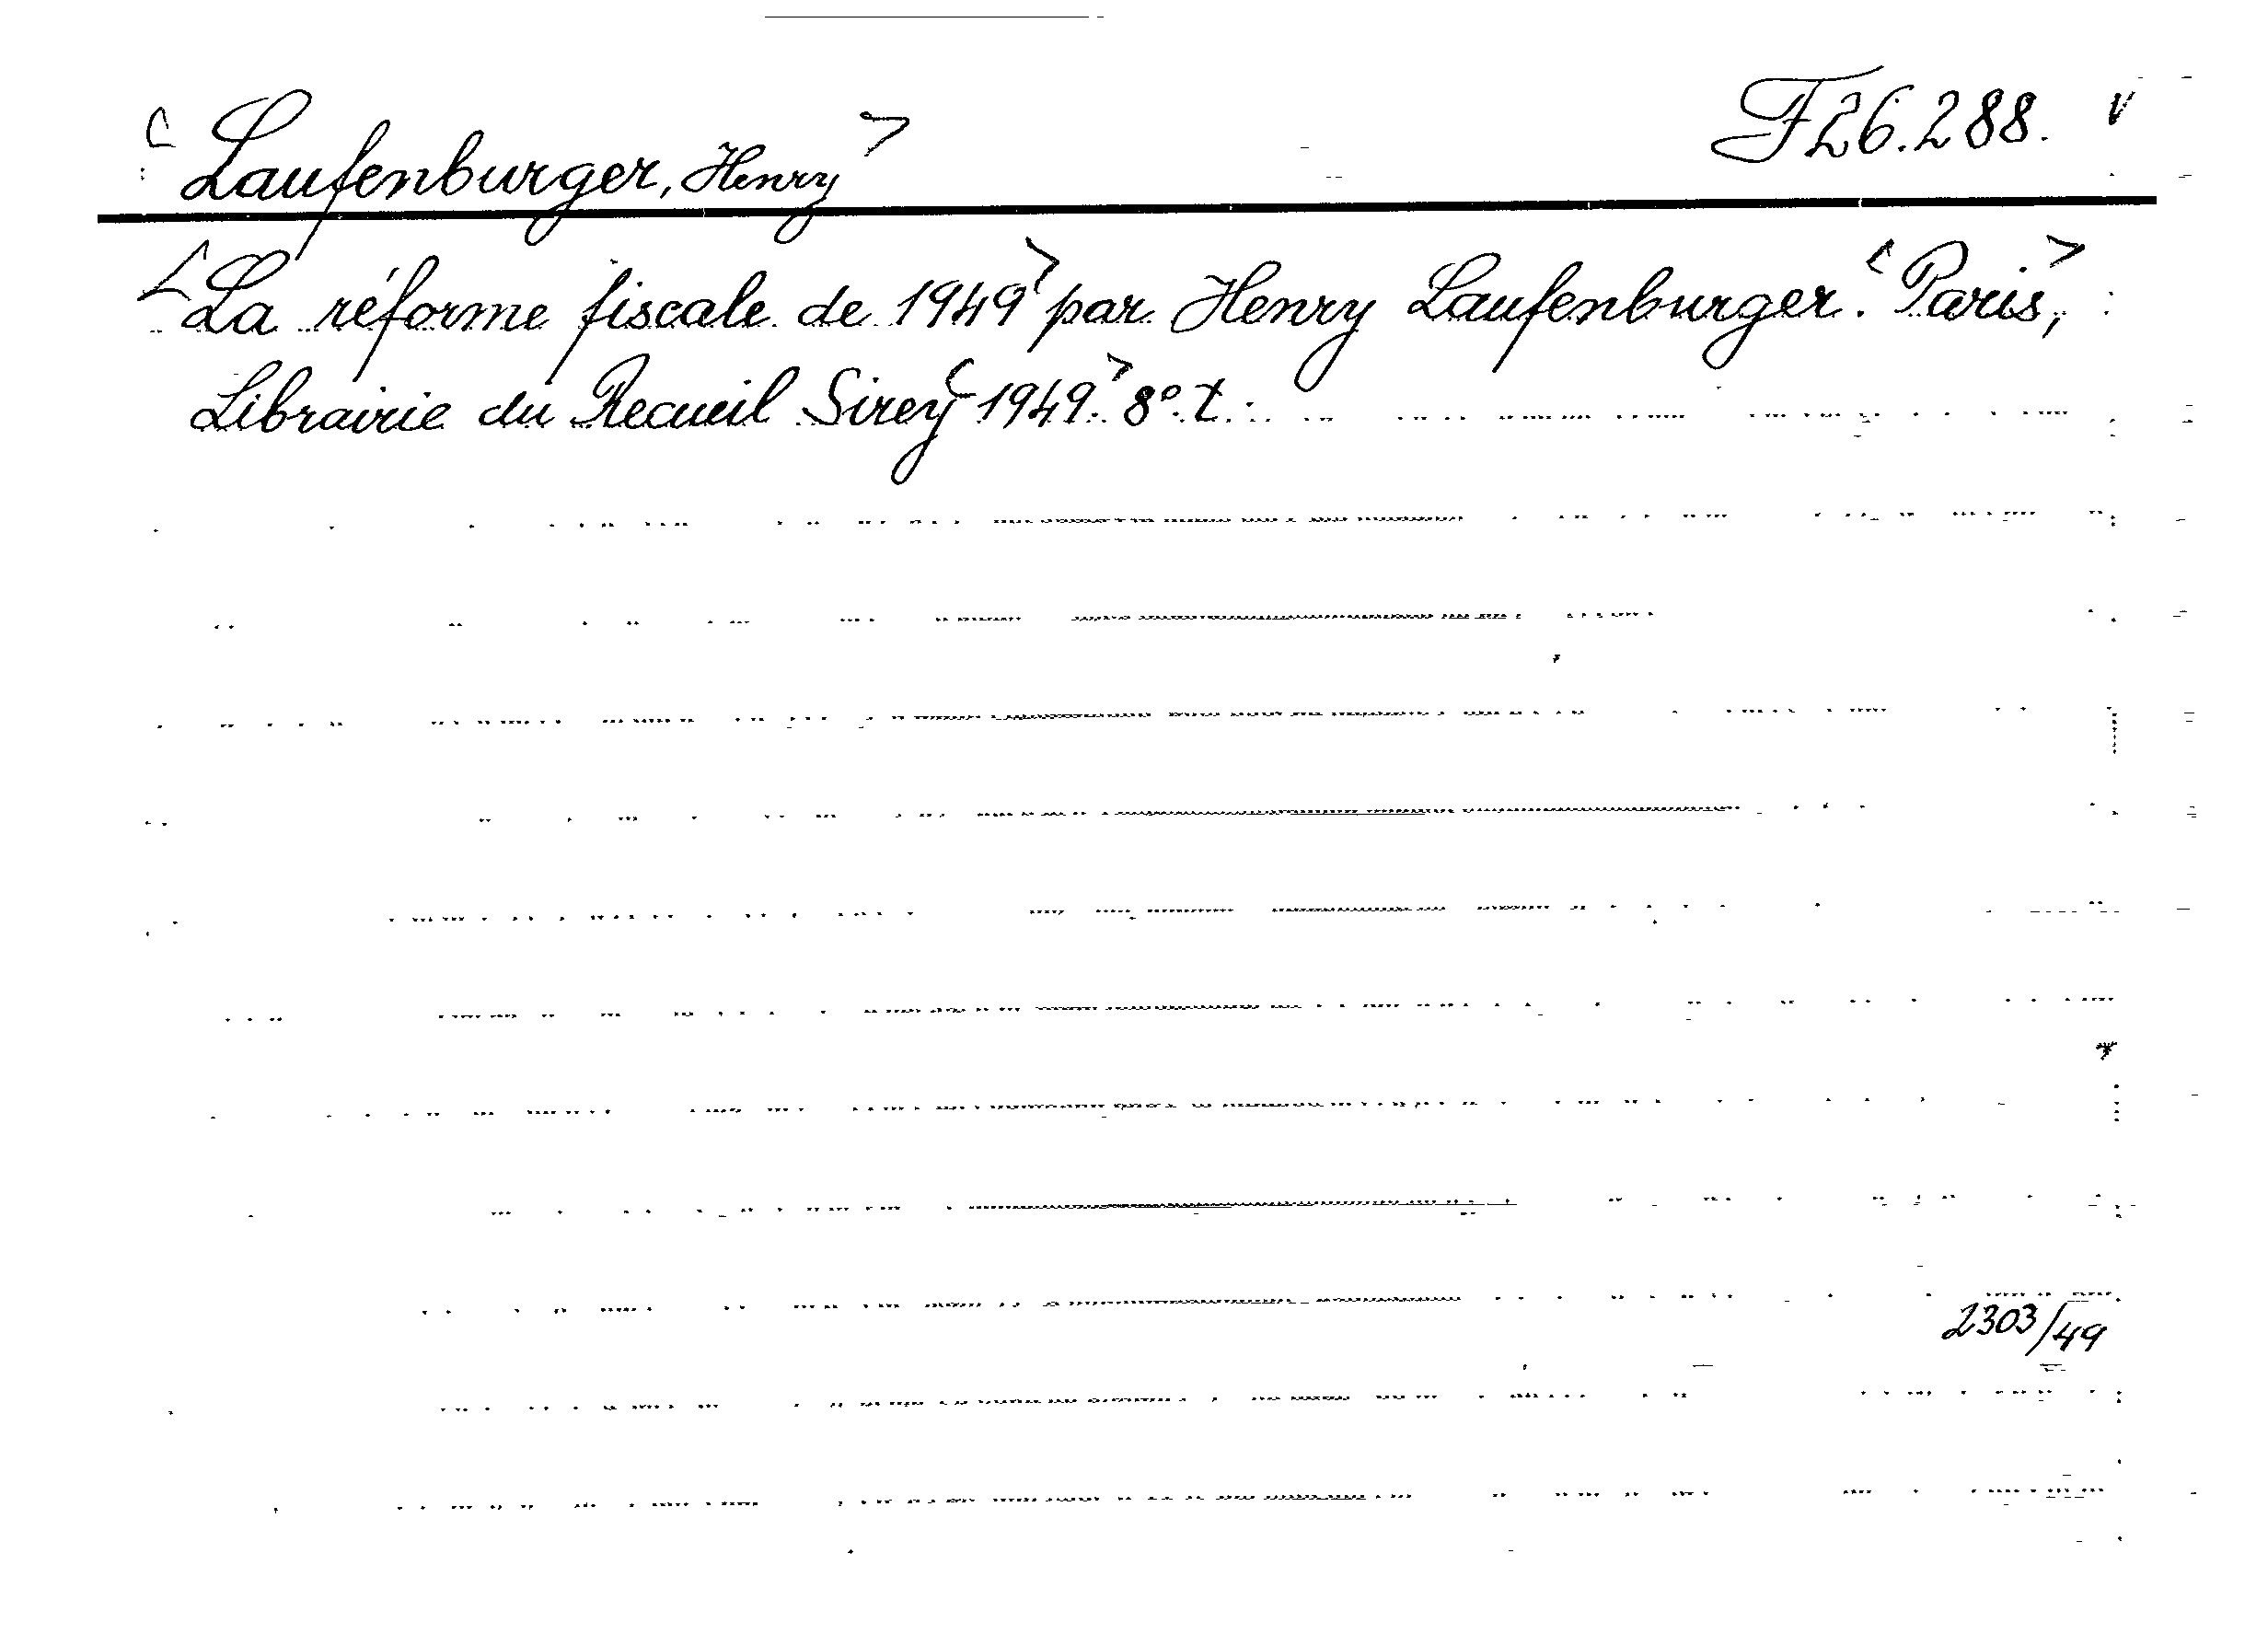 <Laufenburger, Henry> F 26.288. v
<La réforme fiscale de 1949> par Henry Laufenburger. <Paris,>
Librairie du Recueil Sirey <1949.> 8°. t.
2303/49